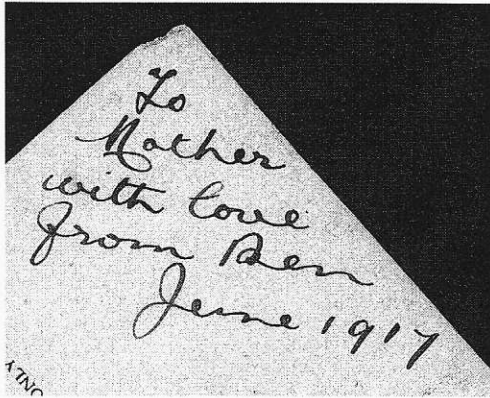 To
Mother
with love
from Ben
June 1917
ONLY